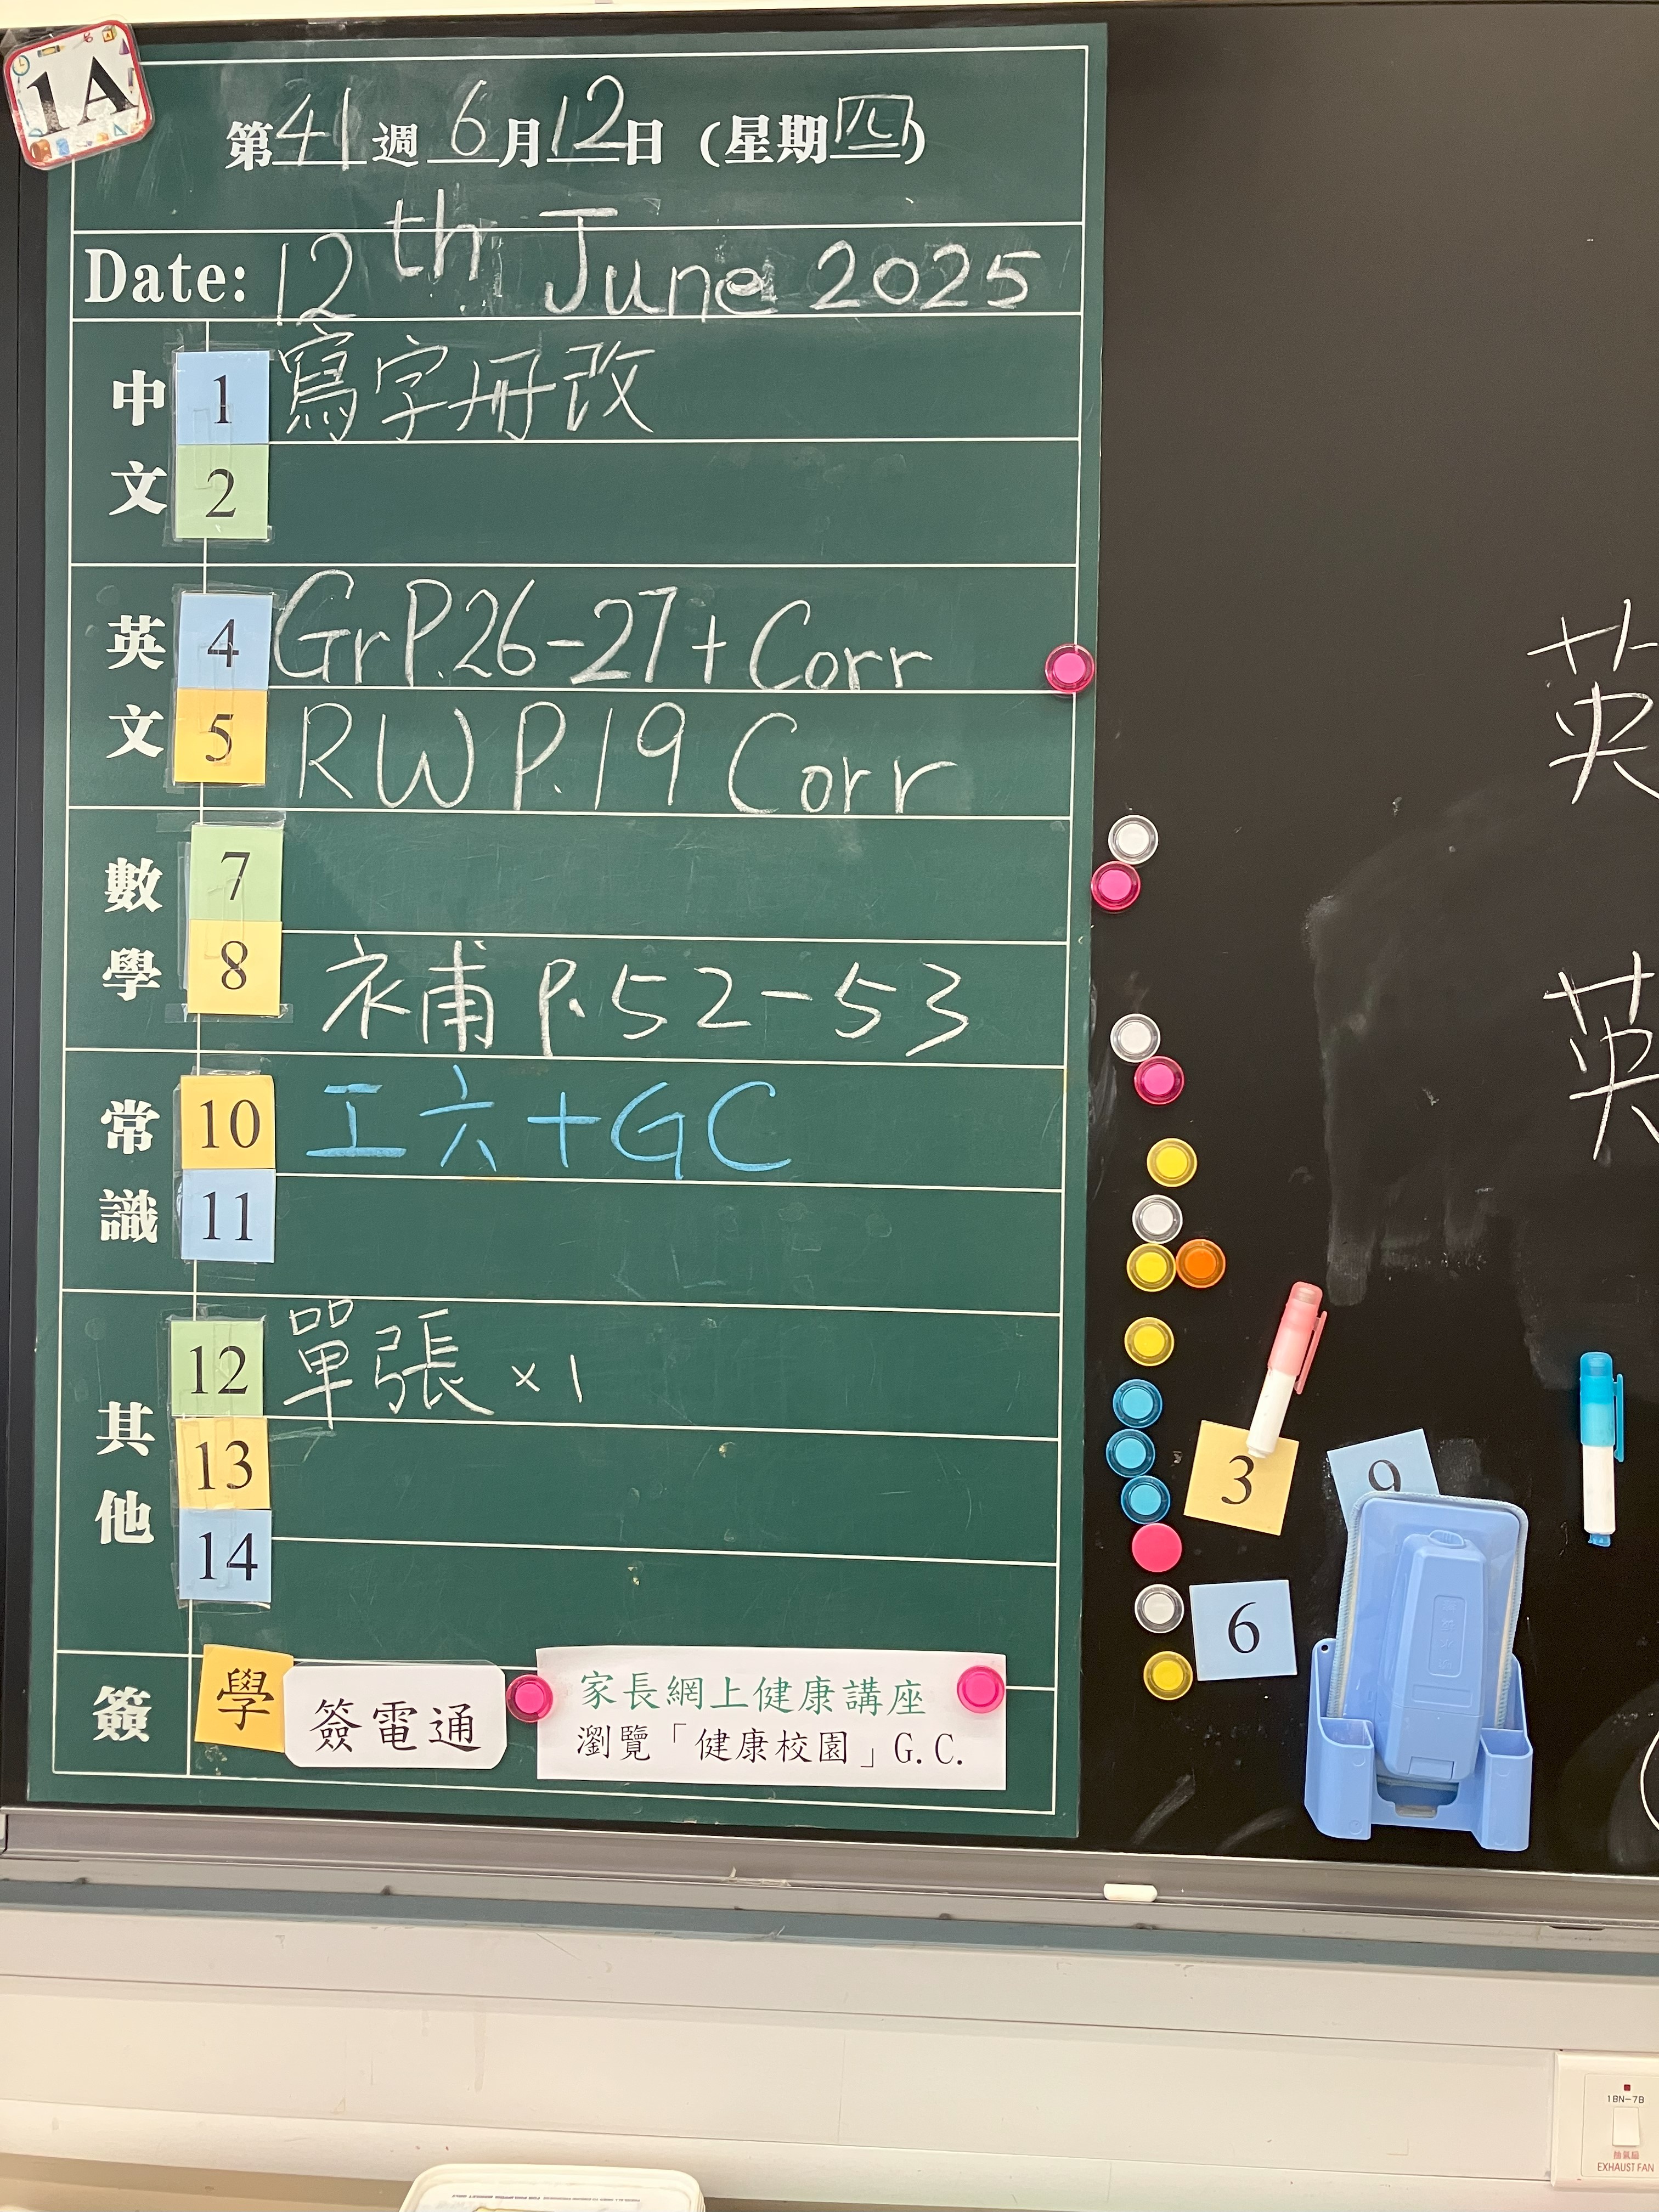 1A
第41週 6月12日 (星期四)
Date: 12th June 2025
中文
1 寫字冊改
2
英文
4 Gr P.26-27 + Corr
5 RW P.19 Corr
數學
7
8 補 p.52-53
常識
10 工六+GC
11
其他
12 單張 ×1
13
14
簽
學
簽電通
家長網上健康講座
瀏覽「健康校園」G.C.
英
英
3
9
6
1BN-7B
抽氣扇
EXHAUST FAN